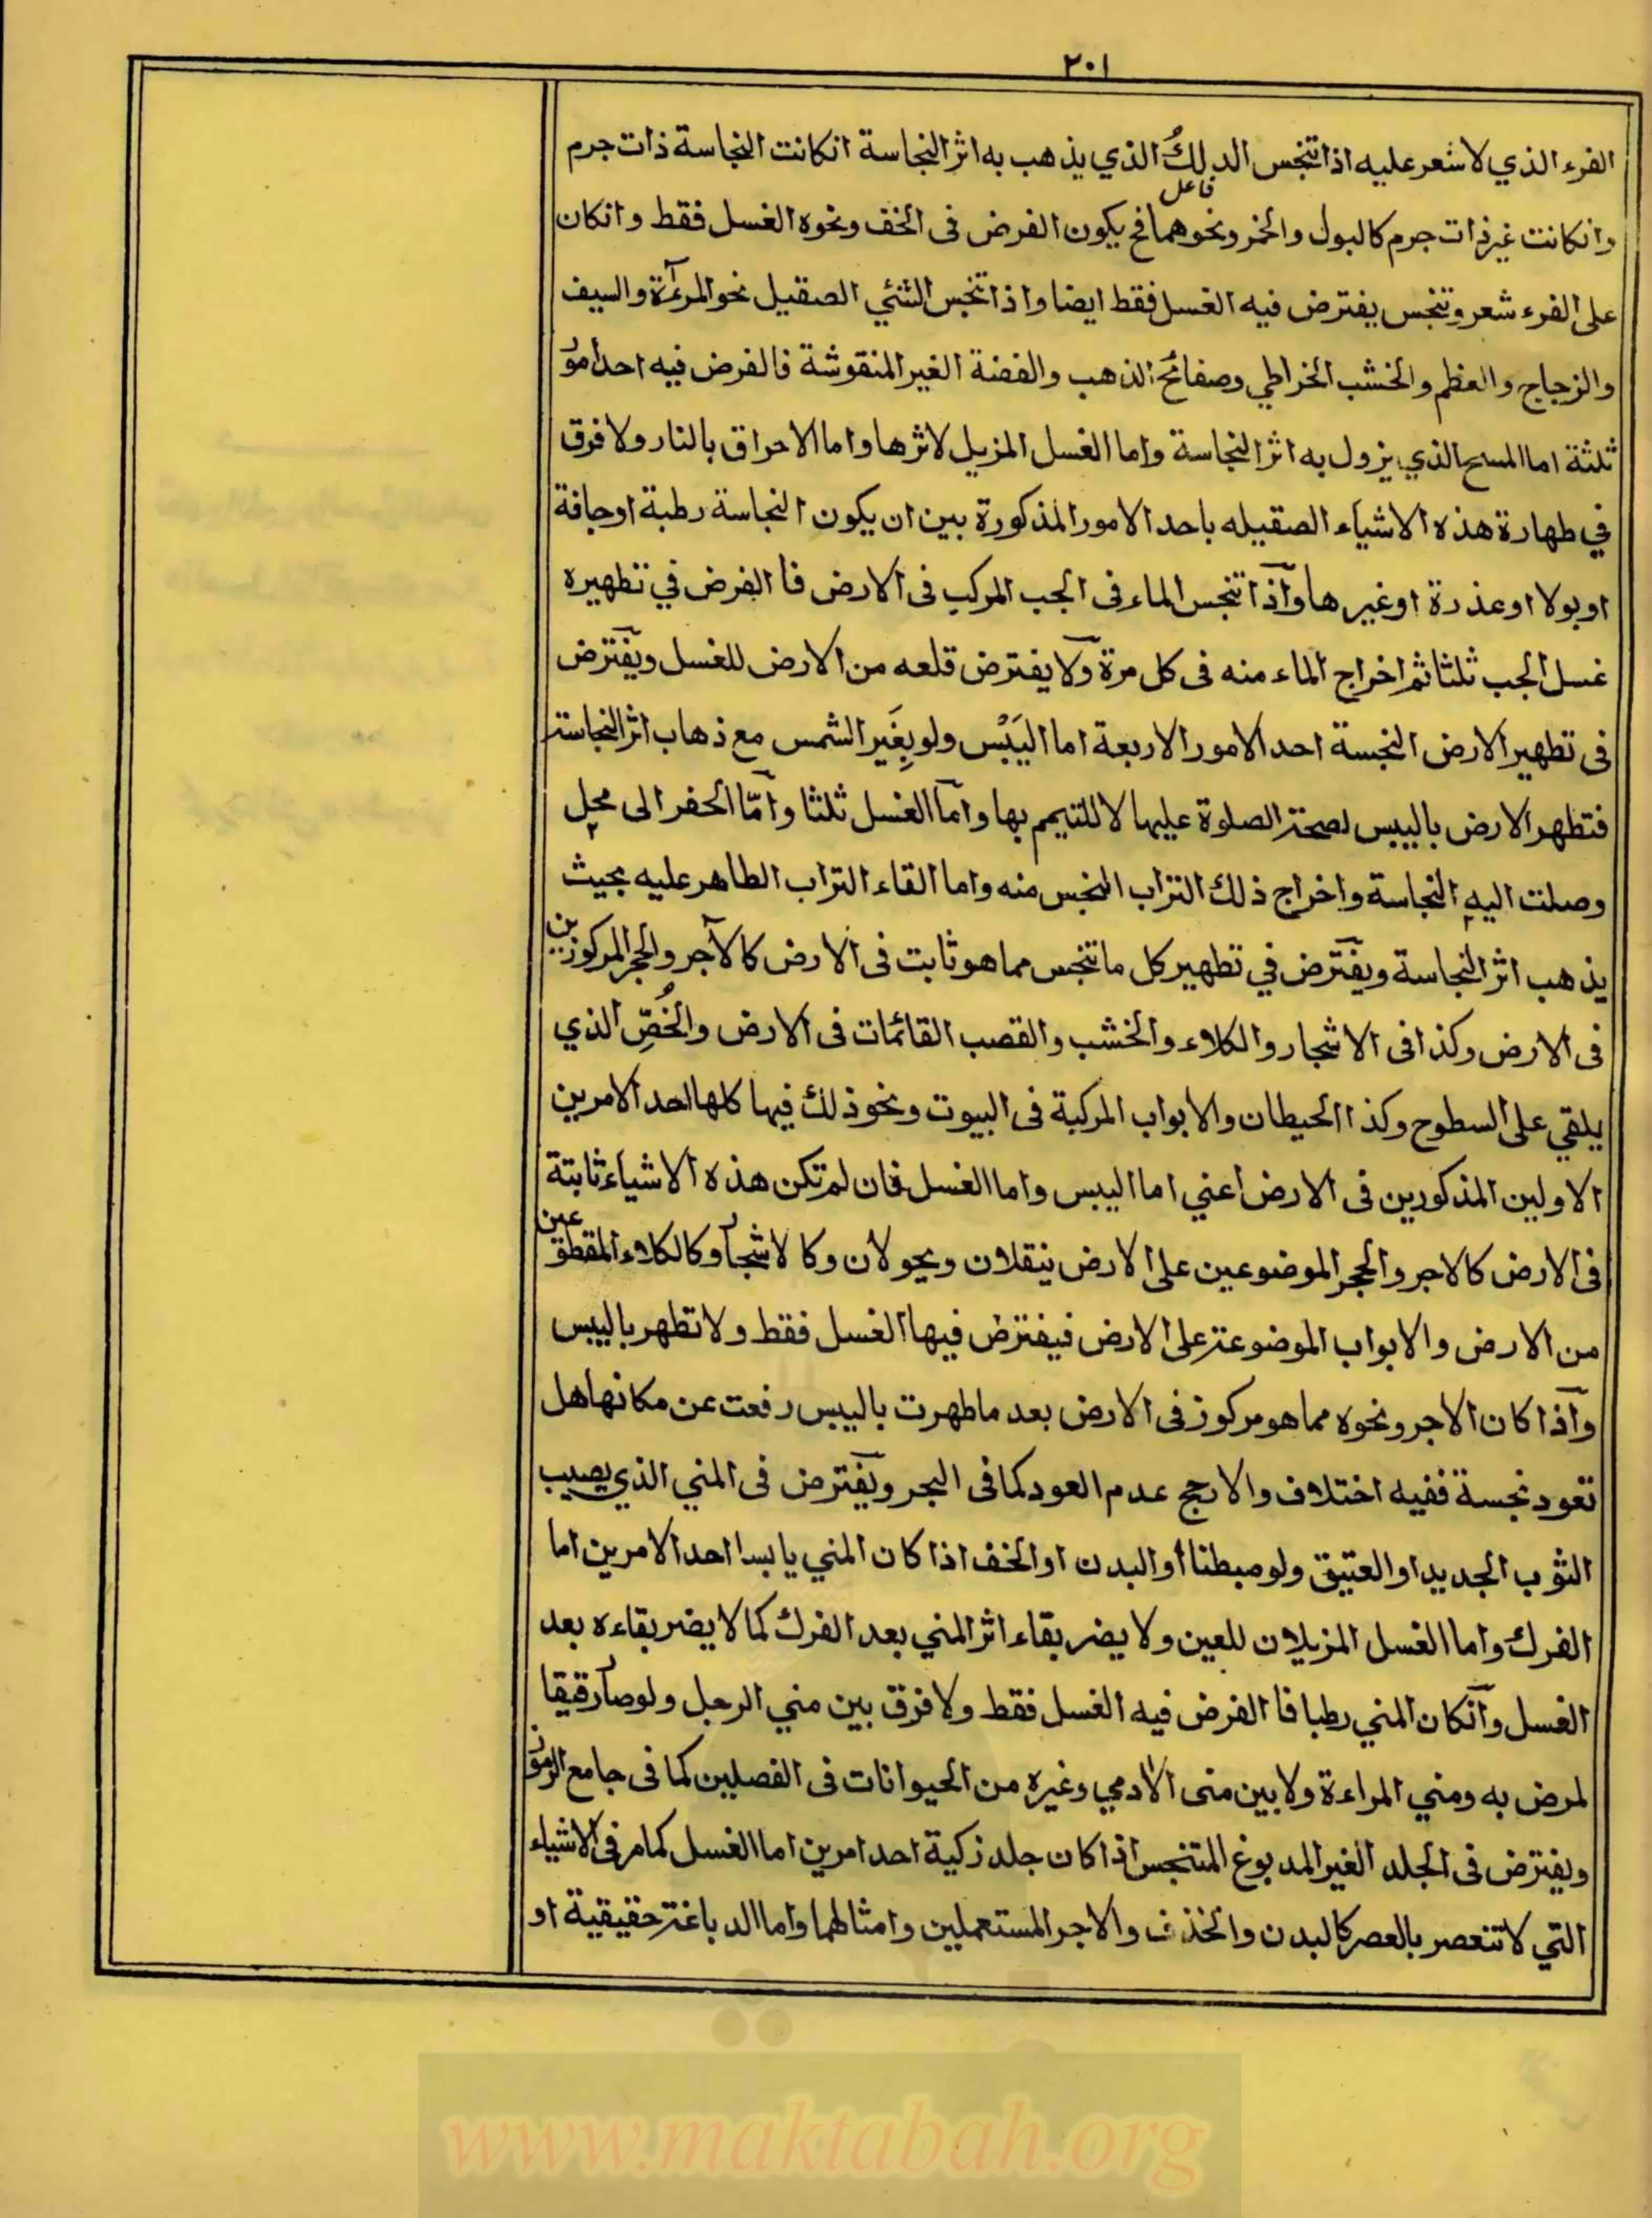 ٢٠١
الفرء الذي لا شعر عليه اذا تنجس الدلكُ الذي يذهب به اثر النجاسة انكانت النجاسة ذات جرم
فاعل
وانكانت غير ذات جرم كالبول والخمر ونحوهما فح يكون الفرض فى الخف ونحوه الغسل فقط وانكان
على الفرء شعر وتنجس يفترض فيه الغسل فقط ايضا واذا تنجس الشئي الصقيل نحو المرءآة والسيف
والزجاج والعظم والخشب الخراطي وصفائح الذهب والفضة الغير المنقوشة فالفرض فيه احد امور
ثلثة اما المسح الذي يزول به اثر النجاسة واما الغسل المزيل لاثرها واما الاحراق بالنار ولا فرق
في طهارة هذه الاشياء الصقيله باحد الامور المذكورة بين ان يكون النجاسة رطبة او جافة
او بولا او عذرة او غيرها وآذا تنجس الماء فى الجب المركب فى الارض فا الفرض في تطهيره
غسل الجب ثلثا ثم اخراج الماء منه فى كل مرة وٓلا يفترض قلعه من الارض للغسل ويفٓترض
فى تطهير الارض النجسة احد الامور الاربعة اما اليَبْس ولو بِغَير الشمس مع ذهاب اثر النجاسة
فتطهر الارض باليبس لصحة الصلوة عليها لا للتيمم بها وامآ الغسل ثلثا وامّآ الحفر الى محل
وصلت اليه النجاسة واخراج ذلك التراب النجس منه واما القاء التراب الطاهر عليه بحيث
يذهب اثر النجاسة ويفٓترض في تطهير كل ما تنجس مما هو ثابت فى الارض كالآجر والحجر المركوزين
فى الارض وكذا فى الاشجار والكلاء والخشب والقصب القائمات فى الارض والخُصِّ الذي
يلقي على السطوح وكذا الحيطان والابواب المركبة فى البيوت ونحو ذلك فيها كلها احد الامرين
الاولين المذكورين فى الارض اعني اما اليبس واما الغسل فان لم تكن هذه الاشياء ثابتة
فى الارض كالاجر والحجر الموضوعين على الارض ينقلان ويحولان وكالاشجار وكالكلاء المقطوعين
من الارض والابواب الموضوعة على الارض فيفترض فيها الغسل فقط ولا تطهر باليبس
وآذا كان الاجر ونحوه مما هو مركوز فى الارض بعد ما طهرت باليبس رفعت عن مكانها هل
تعود نجسة ففيه اختلاف والارجح عدم العود كما فى البحر ويفٓترض فى المني الذي يصيب
الثوب الجديد او العتيق ولو مبطنا أو البدن او الخف اذا كان المني يابسا احد الامرين اما
الفرك واما الغسل المزيلان للعين ولا يضر بقاء اثر المني بعد الفرك كما لا يضر بقاءه بعد
الغسل وآنكان المني رطبا فا الفرض فيه الغسل فقط ولا فرق بين مني الرجل ولو صار رقيقا
لمرض به ومني المراءة ولا بين منى الآدمي وغيره من الحيوانات فى الفصلين كما فى جامع الرموز
ويفترض فى الجلد الغير المدبوغ المتنجس اذا كان جلد زكية احد امرين اما الغسل كما مر فى الاشياء
التي لا تنعصر بالعصر كالبدن والخذف والاجر المستعملين وامثالهما واما الدباغة حقيقية او
www.maktabah.org